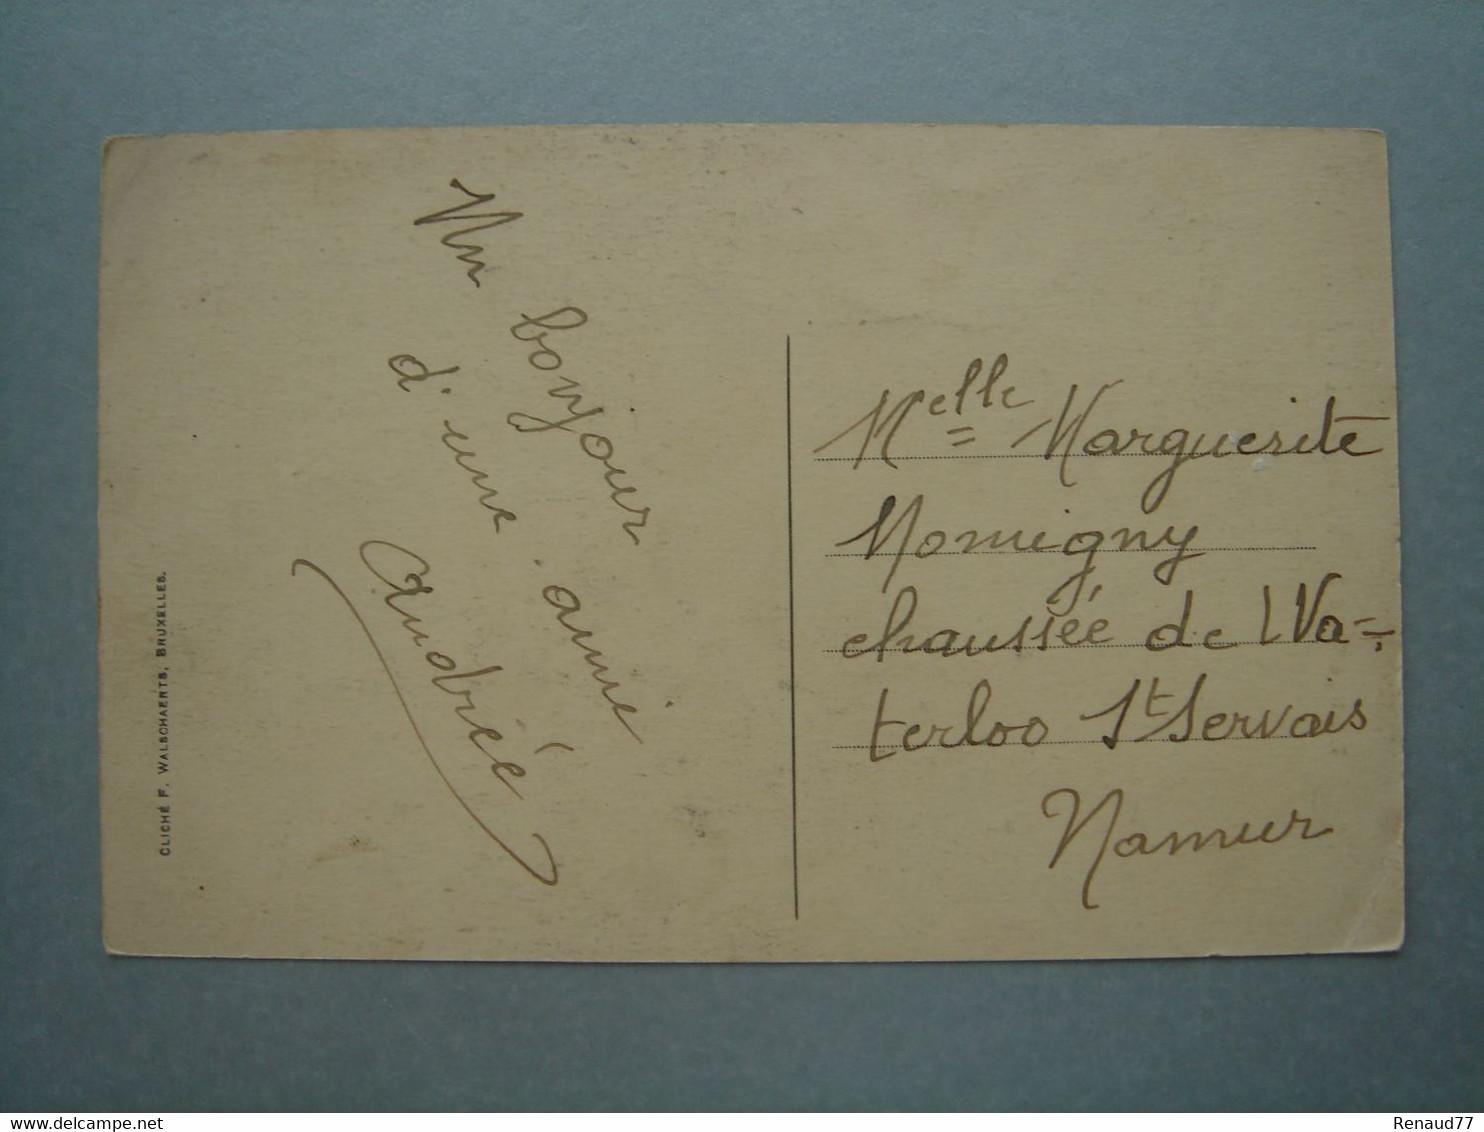 Un bonjour
d'une amie
Andrée
CLICHÉ F. WALSCHAERTS, BRUXELLES.
Melle Marguerite
Momigny
chaussée de Wa=
terloo St Servais
Namur
delcampe.net
Renaud77